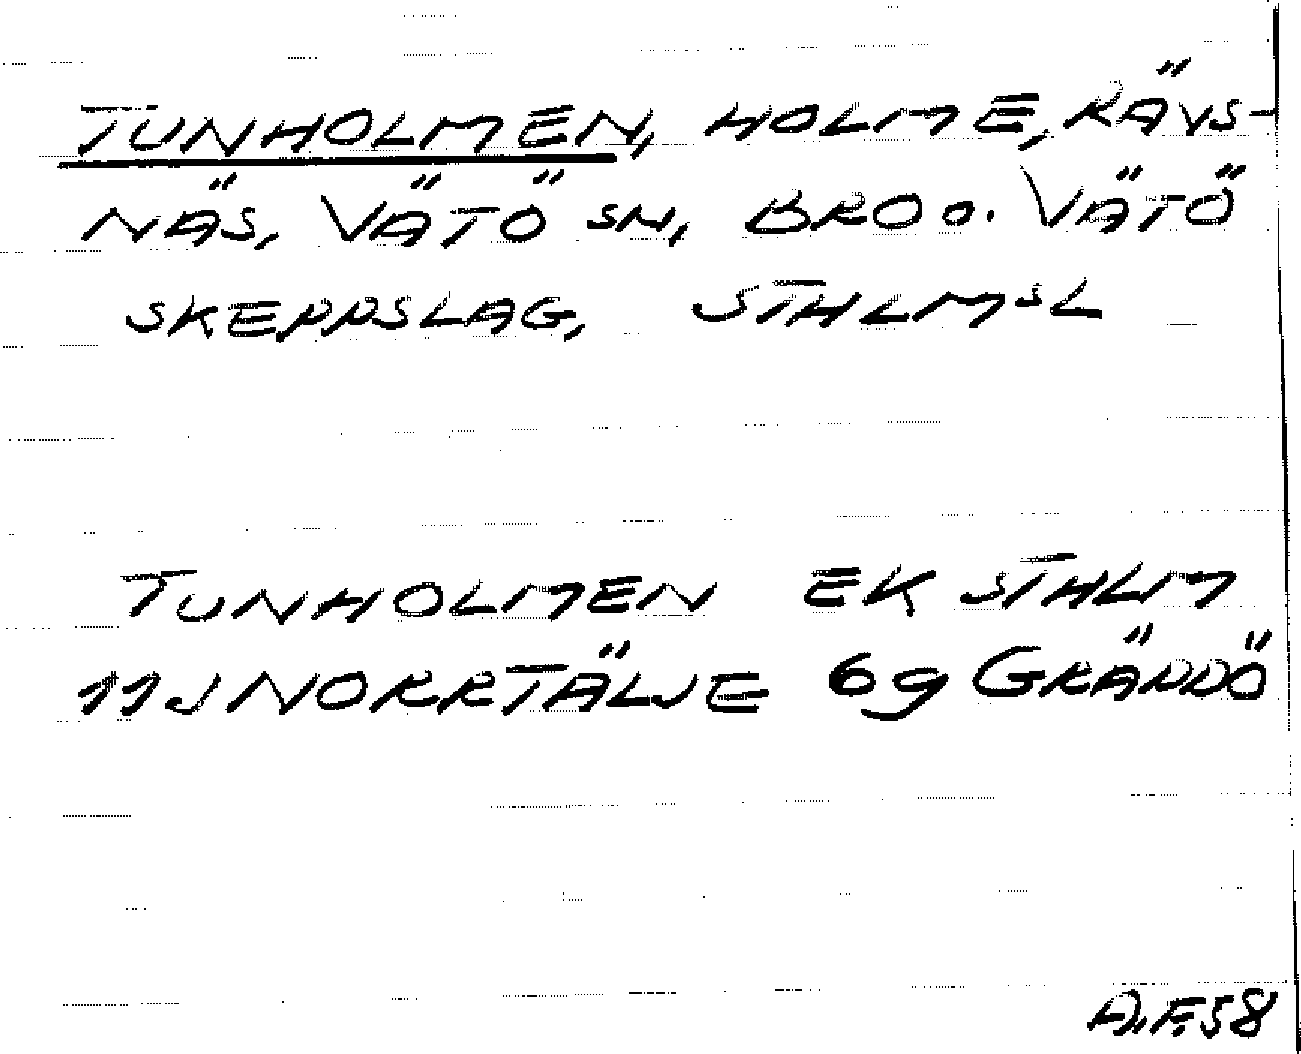 TUNHOLMEN, HOLME, RÄVS-
NÄS, VÄTÖ SN, BRO o. VÄTÖ
SKEPPSLAG, STHLMSL
TUNHOLMEN EK STHLM
11J NORRTÄLJE 6g GRÄDDÖ
A.F.58